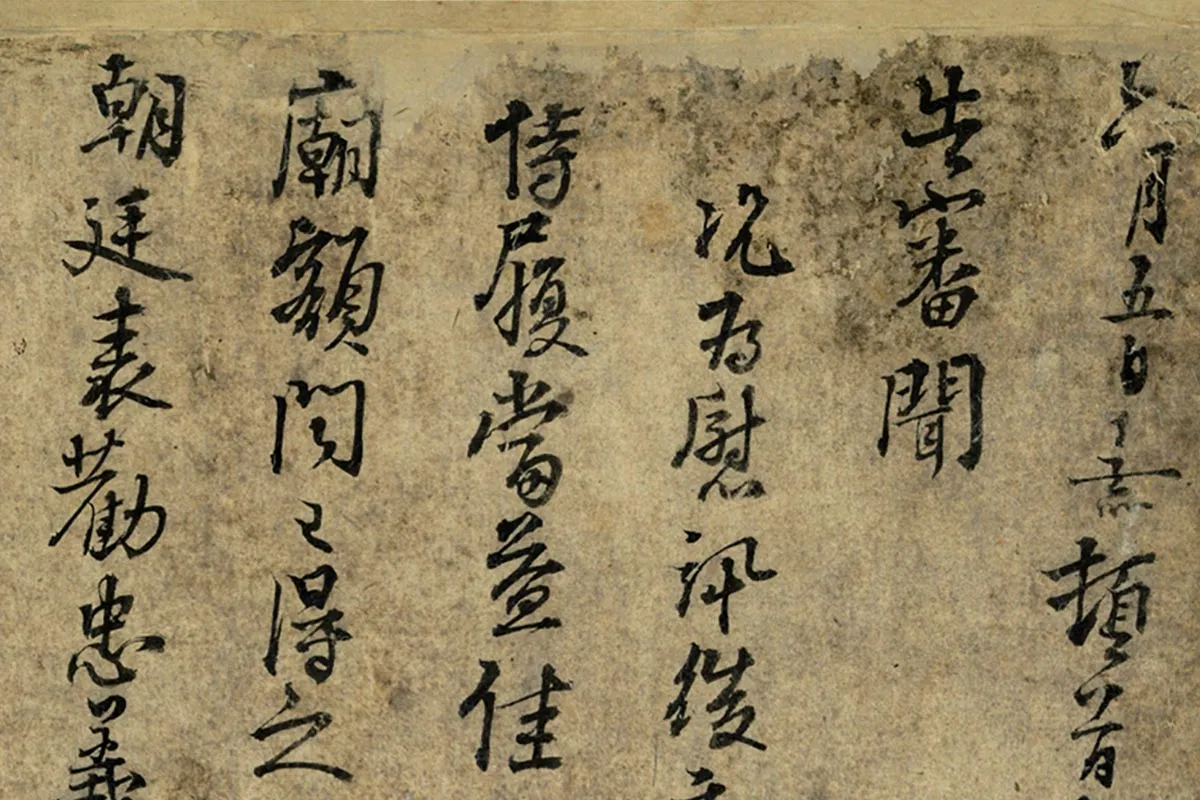 六月五日熹頓首
告審聞
况為慰訊後
侍履當益佳
廟額聞已得之
朝廷表勸忠義